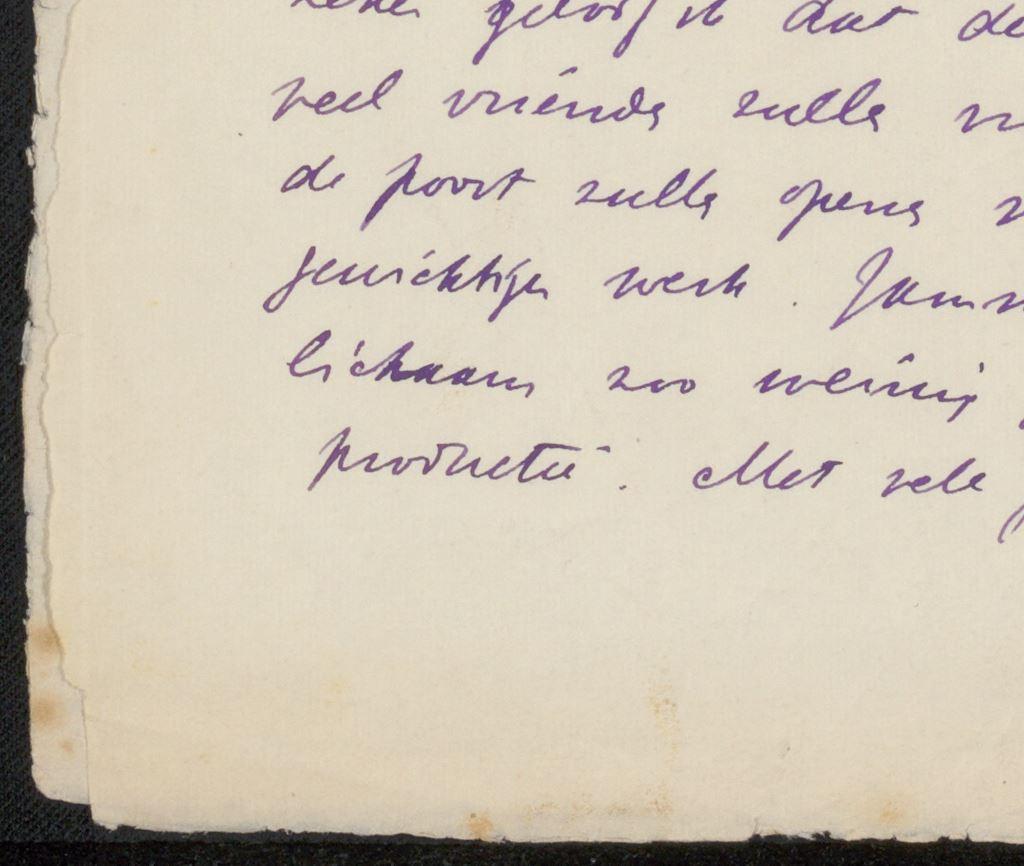 zeker geloof ik dat de
veel vrienden zullen
de poort zullen openen
gewichtiger werk. Jam
lichaam zoo weinig
productie. Met vele